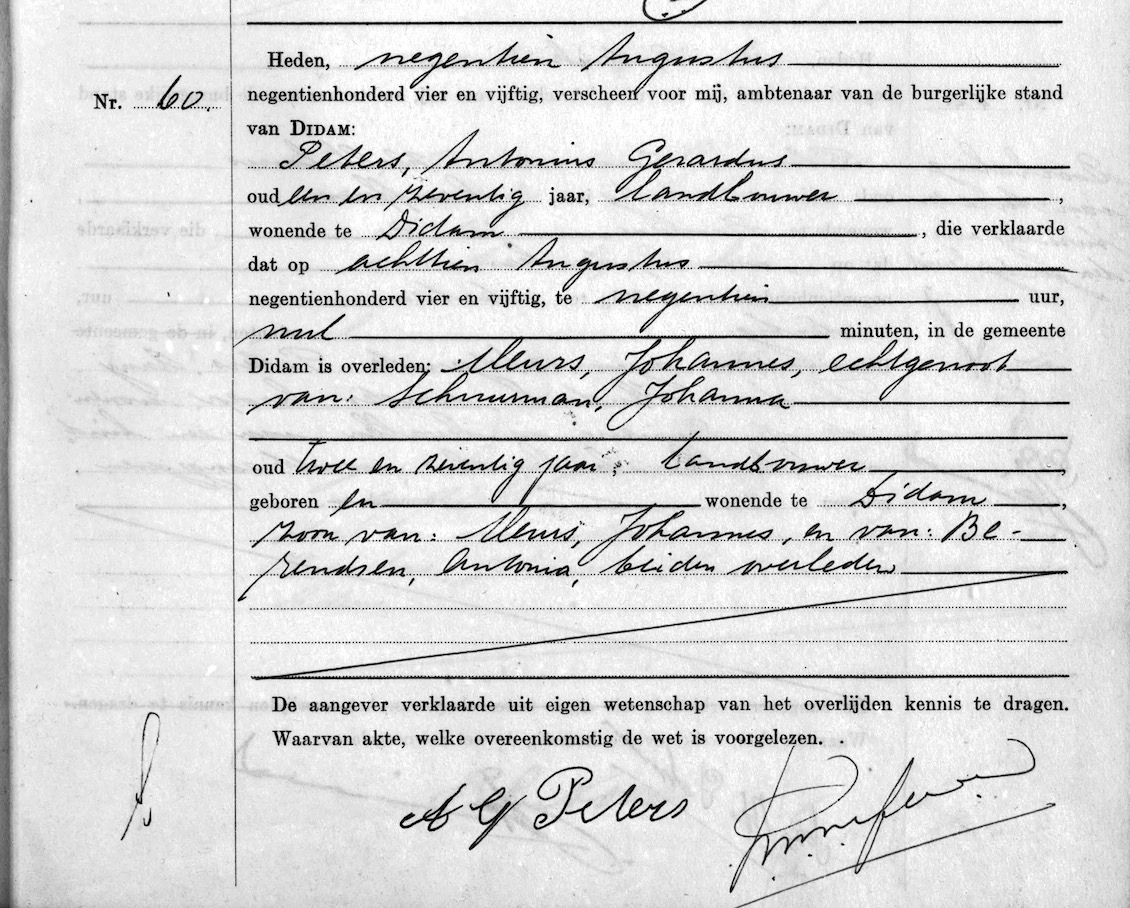 Heden, negentien Augustus
Nr. 60. negentienhonderd vier en vijftig, verscheen voor mij, ambtenaar van de burgerlijke stand
van DIDAM:
Peters, Antonius Gerardus
oud een en zeventig jaar, landbouwer ,
wonende te Didam , die verklaarde
dat op achttien Augustus
negentienhonderd vier en vijftig, te negentien uur,
nul minuten, in de gemeente
Didam is overleden: Meurs, Johannes, echtgenoot
van: Schuurman, Johanna
oud twee en zeventig jaar, landbouwer
geboren en wonende te Didam ,
zoon van: Meurs, Johannes, en van: Be-
rendsen, Antonia, beiden overleden
De aangever verklaarde uit eigen wetenschap van het overlijden kennis te dragen.
Waarvan akte, welke overeenkomstig de wet is voorgelezen.
A G Peters